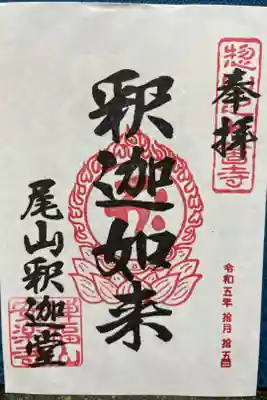 奉拝
釈迦如来
尾山釈迦堂
令和五年 拾月 拾五日